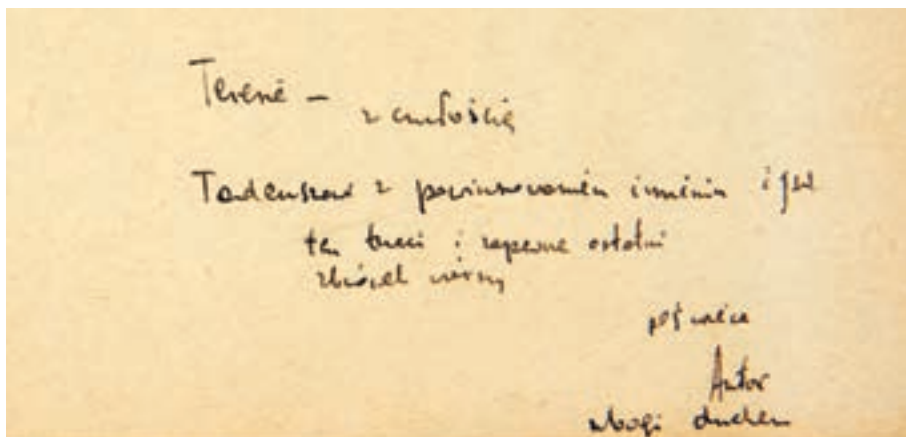 Teresie – z czułością
Tadeuszowi z powinszowaniem imienin i
ten trzeci i zapewne ostatni
zbiorek wierszy
Autor
ubogi duchem